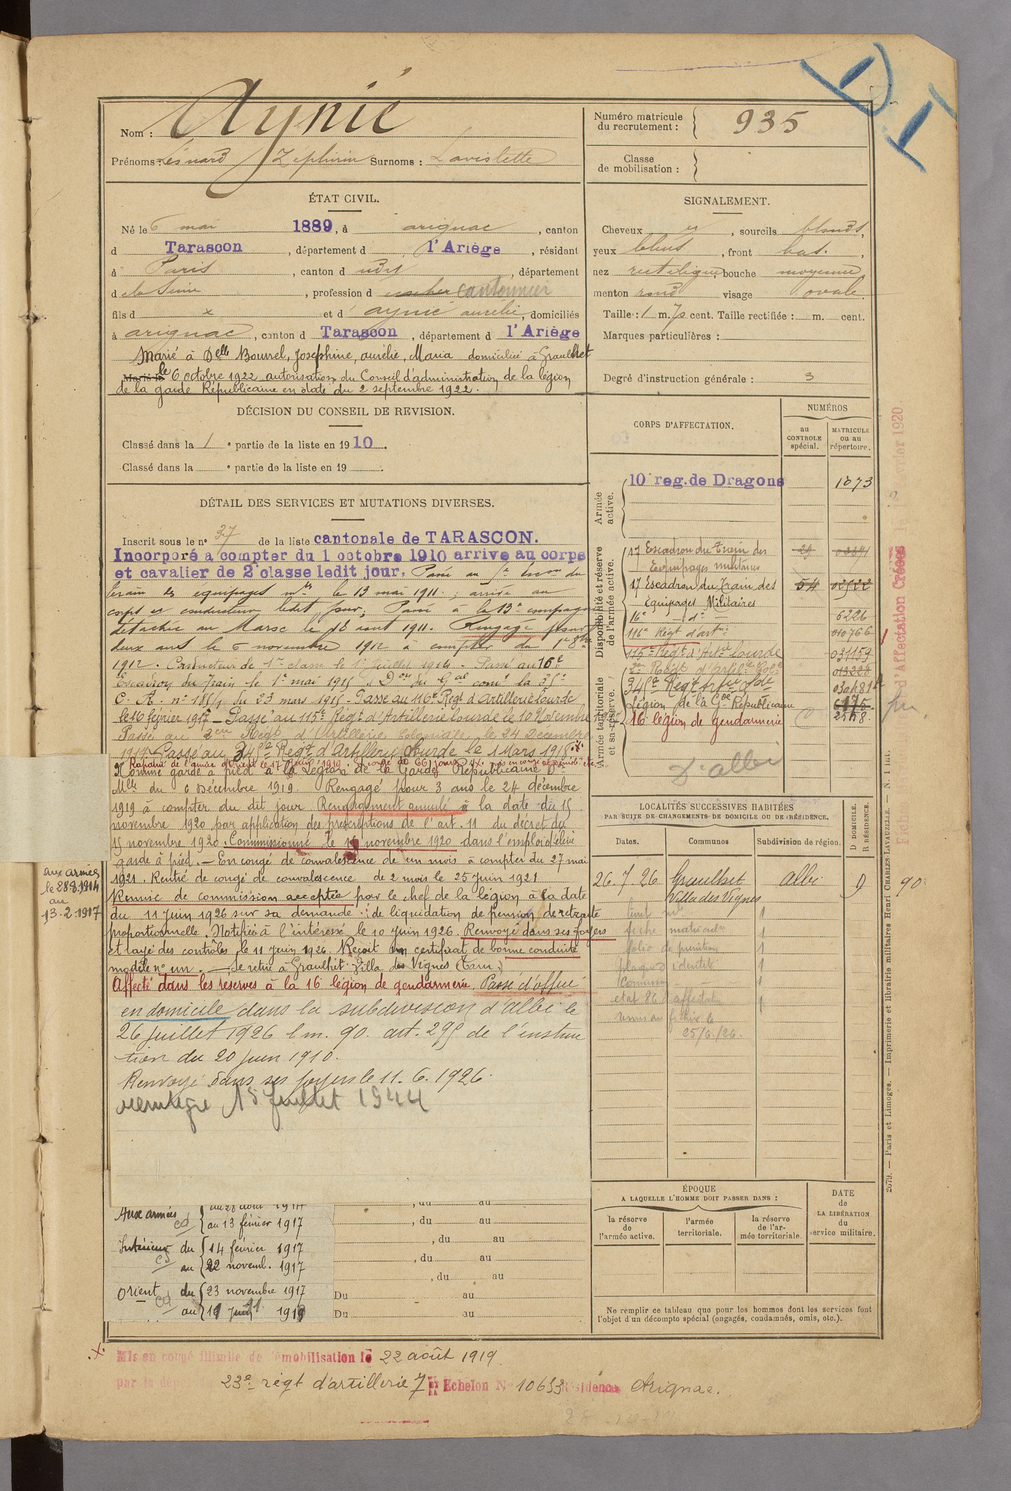 Nom : Aynié
Prénoms : Léonard Zéphirin Surnoms : Lavislette
Numéro matricule du recrutement : 935
Classe de mobilisation :
ÉTAT CIVIL.
Né le 6 mai 1889, à arignac, canton
d Tarascon, département d l'Ariège, résidant
à Paris, canton d udit, département
d e la Seine, profession d cantonnier
fils d x et d aynié aurélie, domiciliés
à arignac, canton d Tarascon, département d l'Ariège
Marié à Delle Bourrel, Joséphine, aurélie, Maria domiciliée à Graulhet
le 6 octobre 1922 autorisation du Conseil d'administration de la légion
de la garde Républicaine en date du 2 septembre 1922.
SIGNALEMENT.
Cheveux et, sourcils blonds,
yeux bleus, front bas,
nez rectiligne, bouche moyenne,
menton rond visage ovale.
Taille : 1 m. 70 cent. Taille rectifiée : m. cent.
Marques particulières :
Degré d'instruction générale : 3
DÉCISION DU CONSEIL DE REVISION.
Classé dans la 1e partie de la liste en 1910.
Classé dans la e partie de la liste en 19 .
DÉTAIL DES SERVICES ET MUTATIONS DIVERSES.
Inscrit sous le n° 37 de la liste cantonale de TARASCON.
Incorporé à compter du 1 octobre 1910 arrivé au corps
et cavalier de 2e classe ledit jour. Passé au
train des équipages mres le 13 mai 1911; arrivé au
corps et conducteur ledit jour; Passé à la 13e compagnie
détachée au Maroc le 18 aout 1911. Rengagé pour
deux ans le 6 novembre 1912 à compter du 1er 8bre
1912. Conducteur de 1re classe le 1er juillet 1914. Passé au 16e
Escadron du Train le 1er mai 1915
C. A. n° 1881/1 du 23 mars 1915. Passé au 116e Regt d'Artillerie Lourde
le 10 février 1917 - Passé au 115e Régt d'Artillerie Lourde le 10 Novembre
Passé au 3em Regt d'Artillerie Coloniale le 24 Décembre
1917. Passé au 345e Regt d'Artillerie Lourde le 1 Mars 1918.
Nommé garde à pied à la Légion de la Garde Républicaine Don
Mlle du 6 Décembre 1919. Rengagé pour 3 ans le 24 décembre
1919 à compter du dit jour. Rengagement annulé à la date du 15
novembre 1920 par application des prescriptions de l'art. 11 du décret du
15 novembre 1920. Commissionné le 15 novembre 1920 dans l'emploi d'élève
garde à pied. - En congé de convalescence de un mois à compter du 27 mai
1921. Rentré de congé de convalescence de 2 mois le 25 juin 1921
Remise de commission acceptée par le chef de la légion à la date
du 11 juin 1926 sur sa demande : de liquidation de pension de retraite
proportionnelle. Notifiée à l'intéressé le 10 juin 1926. Renvoyé dans ses foyers
et rayé des contrôles le 11 juin 1926. Reçoit un certificat de bonne conduite
modèle n° un. - Se retire à Graulhet Villa des Vignes (Tarn)
Affecté dans les reserves à la 16 légion de gendarmerie. Passé d'office
en domicile dans la subdivision d'Albi le
26 juillet 1926 l.m. 90. art. 295 de l'instruc
tion du 20 juin 1910.
Renvoyé dans ses foyers le 11.6.1926.
15 juillet 1944
aux armées
le 28.8.1914
au
13-2-1917
Aux armées
au 13 février 1917
Intérieur du 14 février 1917
au 22 novemb. 1917
Orient du 23 novembre 1917
, du au
, du au
, du au
, du au
Du au
Du au
CORPS D'AFFECTATION.
NUMÉROS
au CONTROLE spécial.
MATRICULE ou au répertoire.
Armée active.
10e reg. de Dragons 1073
Disponibilité et réserve de l'armée active.
17 Escadron du train des
Equipages militaires
17 Escadron du Train des 54
Equipages Militaires
16e - d° - 6226
116e Régt d'artie 010766
115e Regt d'Artie Lourde 031159
345e Regt 
Armée territoriale et sa réserve.
Légion de la Gde Républicaine
16 légion de gendarmerie
D. albi
LOCALITÉS SUCCESSIVES HABITÉES
PAR SUITE DE CHANGEMENTS DE DOMICILE OU DE RÉSIDENCE.
Dates. Communes Subdivision de région. D DOMICILE. R RÉSIDENCE.
26.7.26. Graulhet albi D 90.
Villa des Vignes
fiche matricule
folio de punitions
plaque identité
25/6/26.
ÉPOQUE
A LAQUELLE L'HOMME DOIT PASSER DANS :
la réserve de l'armée active.
l'armée territoriale.
la réserve de l'armée territoriale.
DATE de LA LIBÉRATION du service militaire.
Ne remplir ce tableau que pour les hommes dont les services font
l'objet d'un décompte spécial (engagés, condamnés, omis, etc.).
Mis en congé illimité de démobilisation le 22 août 1919.
par le dépôt 23e régt d'artillerie 7e Echelon N° 10633 Résidence Arignac.
2579. — Paris et Limoges. — Imprimerie et librairie militaires Henri CHARLES-LAVAUZELLE. — N. 1 bis.